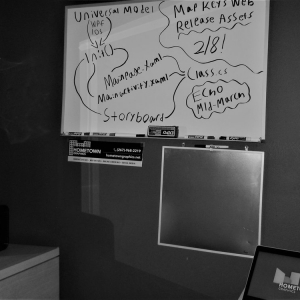 Universal Model
WPF
IOS
Init()
MainPage.xaml
MainActivity.xaml
Storyboard
Map Keys Web
Release Assets
2/8!
Class.cs
ECHO
Mid-March
HOMETOWN
HOMETOWN